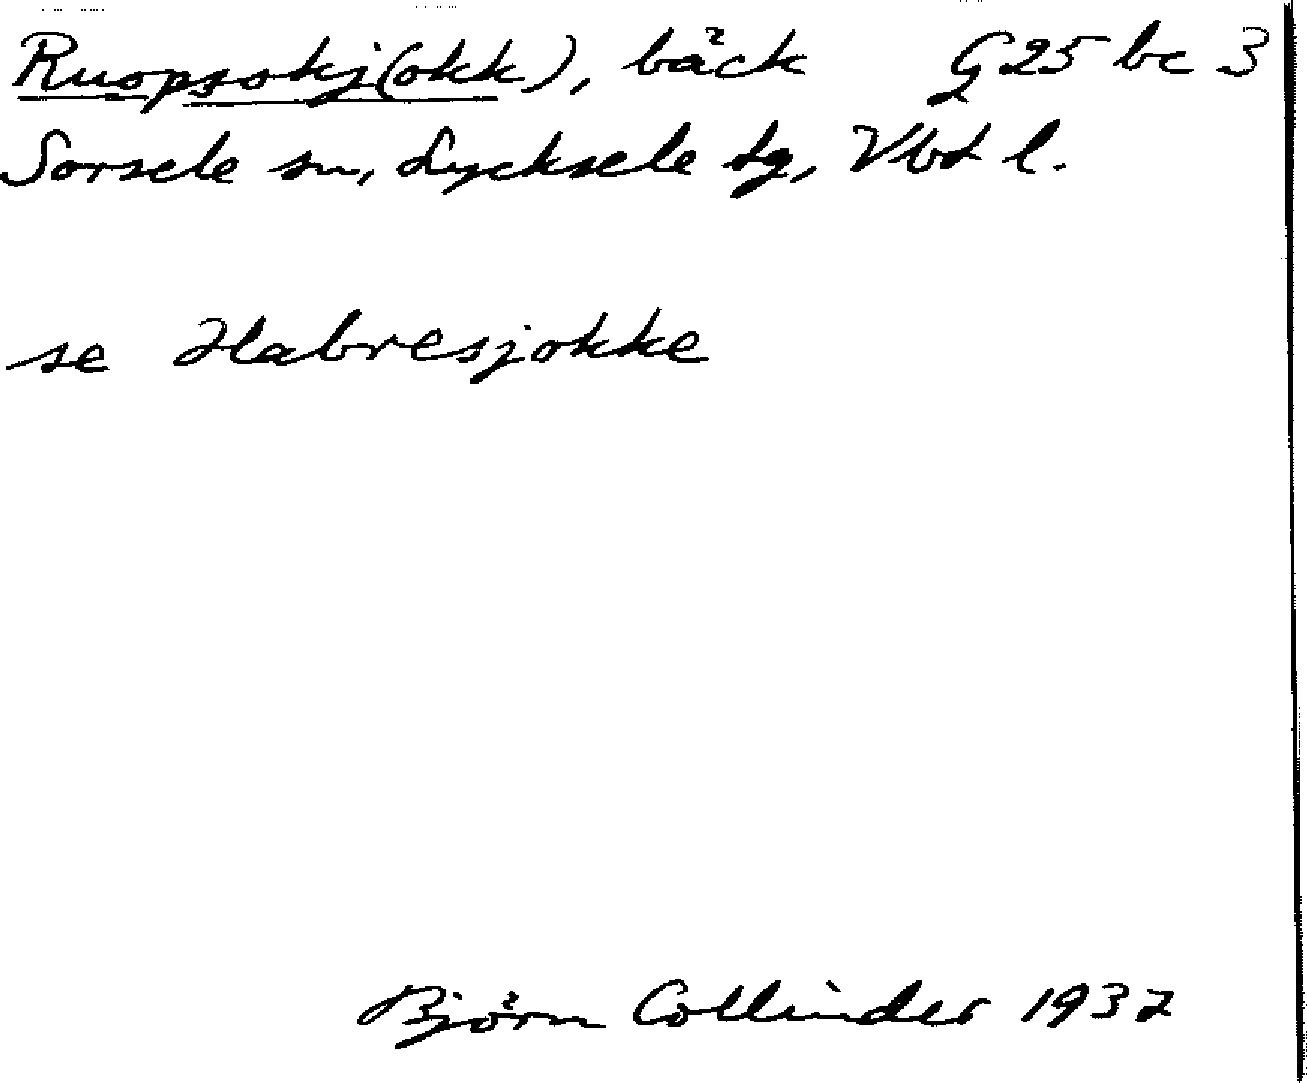 Ruopsokj(okk), bäck G25 bc 3
Sorsele sn, Lycksele lg, Vbd l.
se Habresjokke
Björn Collinder 1932